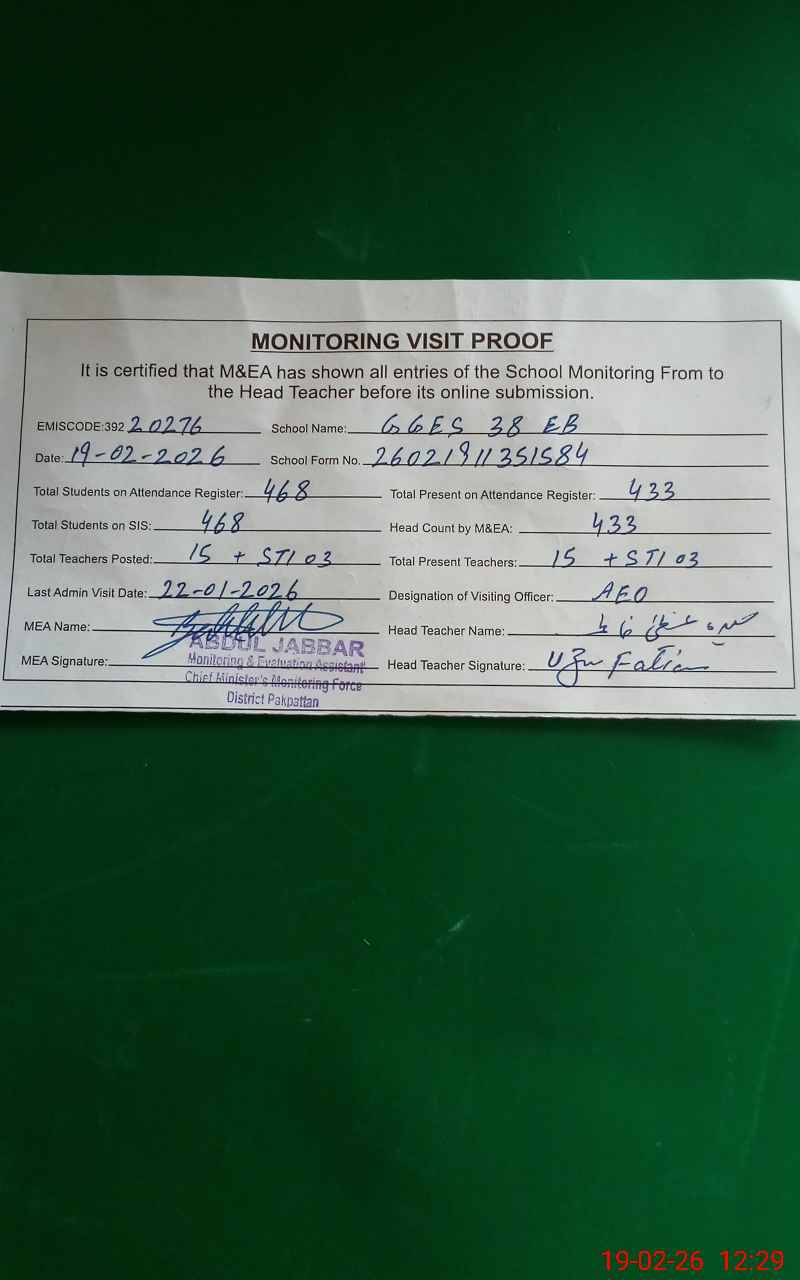 MONITORING VISIT PROOF
It is certified that M&EA has shown all entries of the School Monitoring From to
the Head Teacher before its online submission.
EMISCODE:392 20276 School Name: GGES 38 EB
Date: 19-02-2026 School Form No. 26021911351584
Total Students on Attendance Register: 468 Total Present on Attendance Register: 433
Total Students on SIS: 468 Head Count by M&EA: 433
Total Teachers Posted: 15 + STI 03 Total Present Teachers: 15 + STI 03
Last Admin Visit Date: 22-01-2026 Designation of Visiting Officer: AEO
MEA Name: Head Teacher Name:
ABDUL JABBAR
MEA Signature: Head Teacher Signature:
Monitoring & Evaluation Assistant
Chief Minister's Monitoring Force
District Pakpattan
19-02-26 12:29